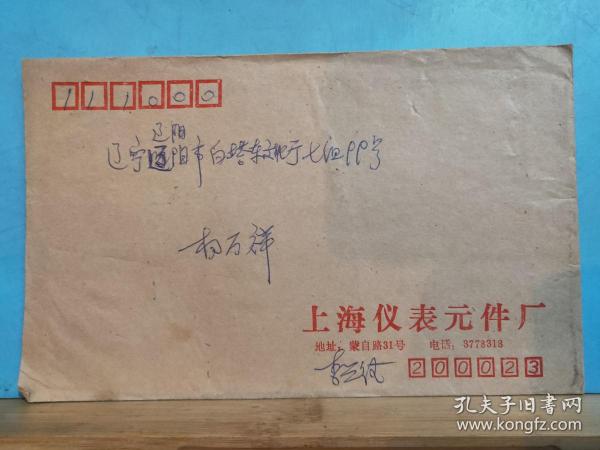 111000
辽阳
辽宁阳市白塔东文化厅七组99号
杨万祥
上海仪表元件厂
地址：蒙自路31号 电话：3778318
李
200023
孔夫子旧书网
www.kongfz.com